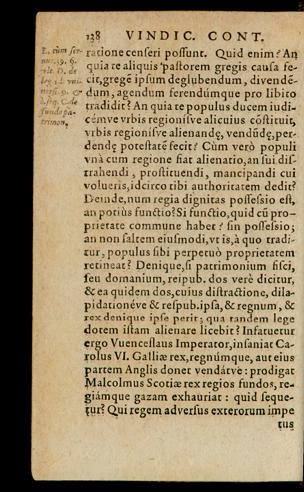 128 VINDIC. CONT.
L. cùm ser-
uus. 39. §.
vlt. D. de
leg. 1. l. vni-
uersi. 9. &
l. seq. C. de
fundis pa-
trimon.
ratione censeri possunt. Quid enim? An
quia te aliquis pastorem gregis causa fe-
cit, gregē ipsum deglubendum, divendē-
dum, agendum ferendúmque pro libito
tradidit? An quia te populus ducem iudi-
cémve vrbis regionísve alicuius cōstituit,
vrbis regionísve alienandę, vendūdę, per-
dendę potestatē fecit? Cùm verò populi
vnà cum regione fiat alienatio, an sui dis-
trahendi, prostituendi, mancipandi cui
volueris, idcirco tibi authoritatem dedit?
Deinde, num regia dignitas possessio est,
an potiùs functio? Si functio, quid cū pro-
prietate commune habet? sin possessio;
an non saltem eiusmodi, vt is, à quo tradi-
tur, populus sibi perpetuò proprietatem
retineat? Denique, si patrimonium fisci,
seu domanium, reipub. dos verè dicitur,
& ea quidem dos, cuius distractione, dila-
pidationéve & respub. ipsa, & regnum, &
rex denique ipse perit; qua tandem lege
dotem istam alienare licebit? Infatuetur
ergo Vuenceslaus Imperator, insaniat Ca-
rolus VI. Galliæ rex, regnúmque, aut eius
partem Anglis donet vendátve: prodigat
Malcolmus Scotiæ rex regios fundos, re-
giámque gazam exhauriat: quid seque-
tur? Qui regem adversus exterorum impe
tus